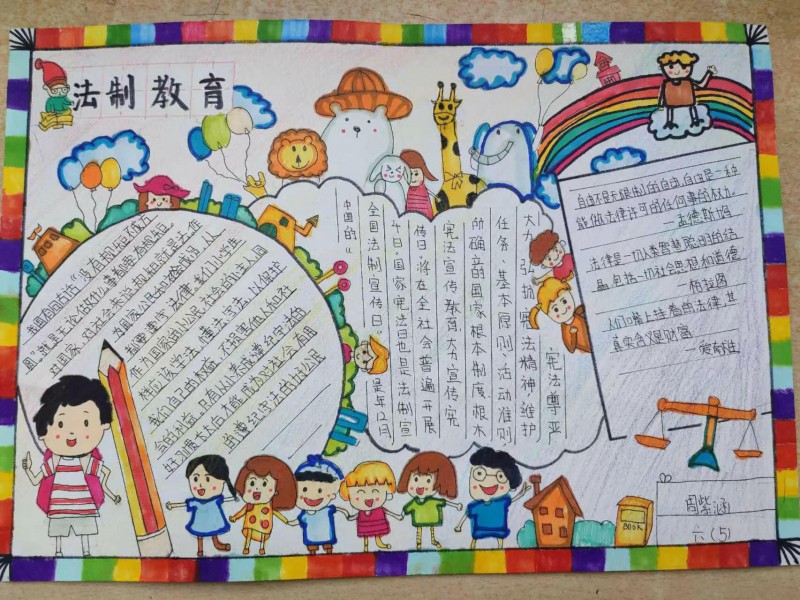 法制教育
我国有句古话“没有规矩不成方
圆”就是无论做什么事都要有规矩
对国家、对社会来说规矩就是法律
为国家公民和谐的生活，人人
都要遵守法律。我们小学生
作为国家的小公民、社会的小主人同
样应该学法、懂法、守法、以保护
我们自己的权益，不损害他人和社
会的利益。只有从小养成遵纪守法的
好习惯长大后才能成为对社会有用
遵纪守法的好公民
中国的“
全国法制宣传日”是年12月
4日，国家宪法日也是法制宣
传日，将在全社会普遍开展
宪法宣传教育大力宣传宪
所确立的国家根本制度、根本
任务、基本原则、活动准则
大力弘扬宪法精神，维护
宪法尊严
自由不是无限制的自由，自由是一种
能做法律许可的任何事的权力
——孟德斯鸠
法律是一切人类智慧聪明的结
晶，包括一切社会思想和道德
——柏拉图
人们嘴上挂着的法律，其
真实含义是财富
BOOK
周紫涵
六（5）